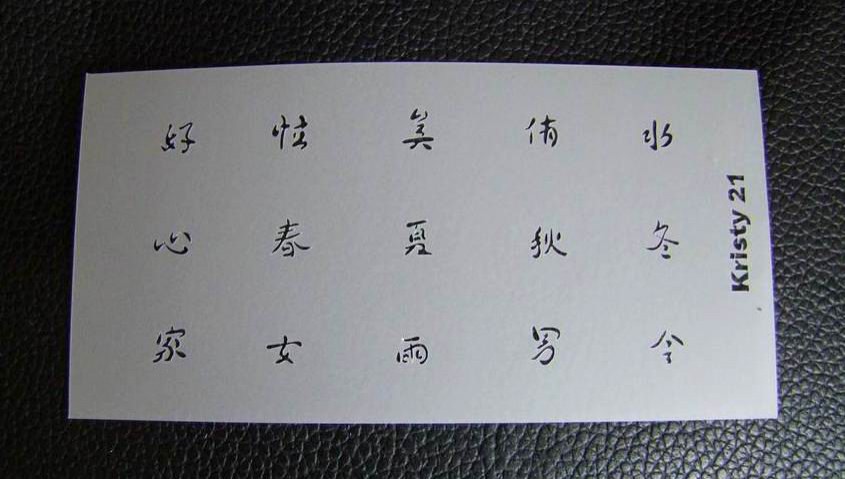 好 性 美 情 水
心 春 夏 秋 冬
家 女 雨 男 令
Kristy 21